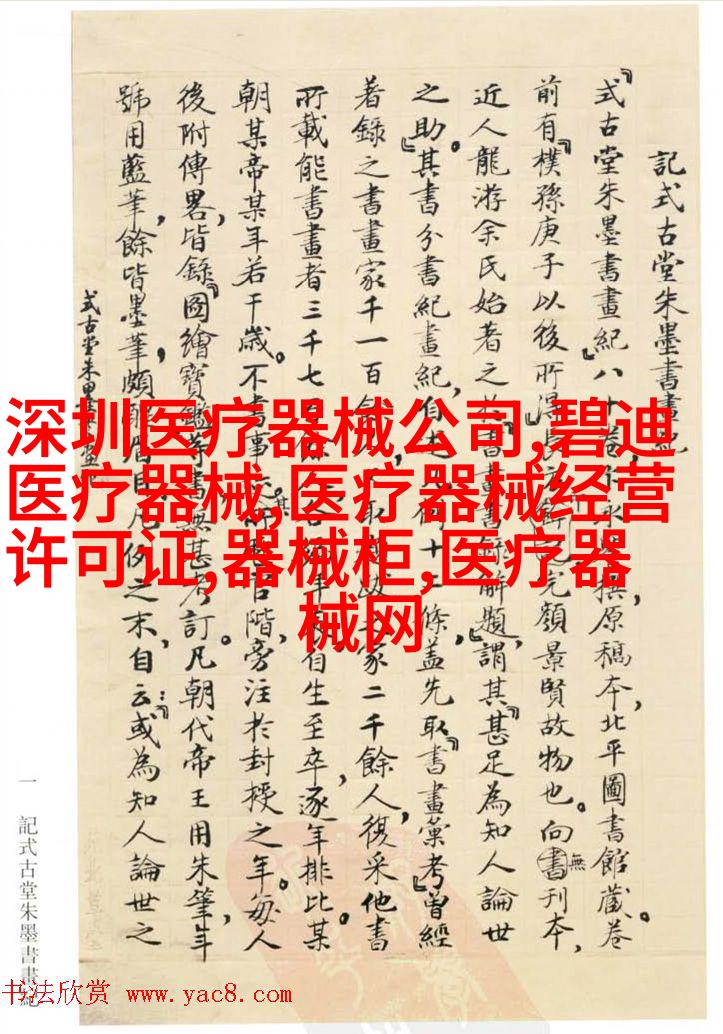 記式古堂朱墨書畫紀
『式古堂朱墨書畫紀』八十卷,永撰,原稿本,北平圖書館藏。卷
前有『樸孫庚子以後所得完顏景賢故物也。向無刊本,
近人龍游余氏始著之於書畫書錄解題,謂其『甚足為知人論世
之助』。其書分書紀畫紀,自十二條,蓋先取『書畫彙考』曾經
著錄之書畫家千一百餘取家二千餘人,後采他書
所載能書畫者三千七百餘年自生至卒,逐年排比某
朝某帝某年若干歲。不書事其官階,旁注於封授之年。每人
後附傳畧,皆錄『圖繪寶鑑等書無甚考訂。凡朝代帝王用朱筆,年
號用藍筆,餘皆墨筆,頗醒眉目凡例之末,自云:『或為知人論世之
式古堂朱墨書畫紀
深圳医疗器械公司,碧迪
医疗器械,医疗器械经营
许可证,器械柜,医疗器
械网
一
記式古堂朱墨書畫紀
书法欣赏 www.yac8.com